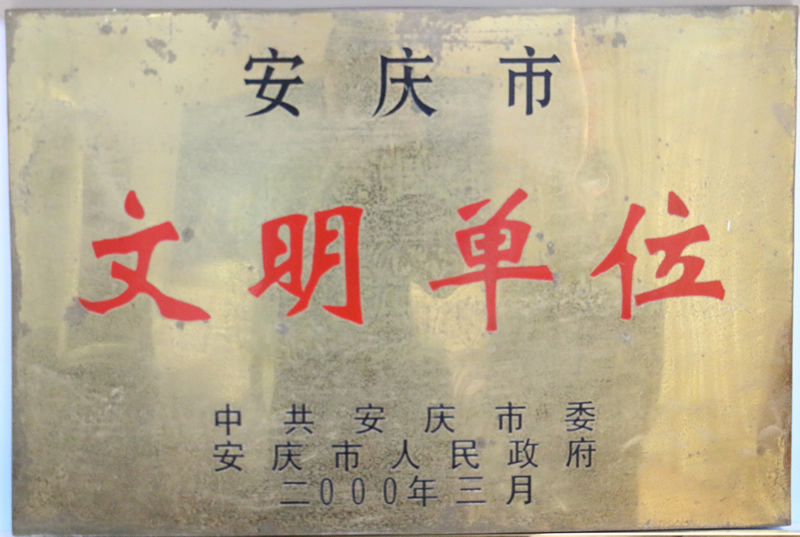 安庆市
文明单位
中共安庆市委
安庆市人民政府
二000年三月